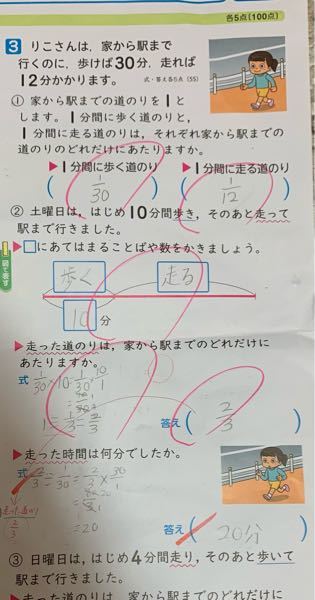 各5点(100点)
3 りこさんは、家から駅まで
行くのに、歩けば30分、走れば
12分かかります。 式・答え各5点(55)
① 家から駅までの道のりを1と
します。1分間に歩く道のりと、
1分間に走る道のりは、それぞれ家から駅までの
道のりのどれだけにあたりますか。
▶1分間に歩く道のり ▶1分間に走る道のり
( 1/30 ) ( 1/12 )
② 土曜日は、はじめ10分間歩き、そのあと走って
駅まで行きました。
▶□にあてはまることばや数をかきましょう。
図で表す
歩く 走る
10 分
▶走った道のりは、家から駅までのどれだけに
あたりますか。
式 1/30×10=1/30×10/1
1-1/3=2/3
答え ( 2/3 )
▶走った時間は何分でしたか。
式 2/3÷1/30=2/3×30/1
走った道のり
2/3
=20
答え ( 20分 )
③ 日曜日は、はじめ4分間走り、そのあと歩いて
駅まで行きました。
▶歩いた道のりは、家から駅までのどれだけに